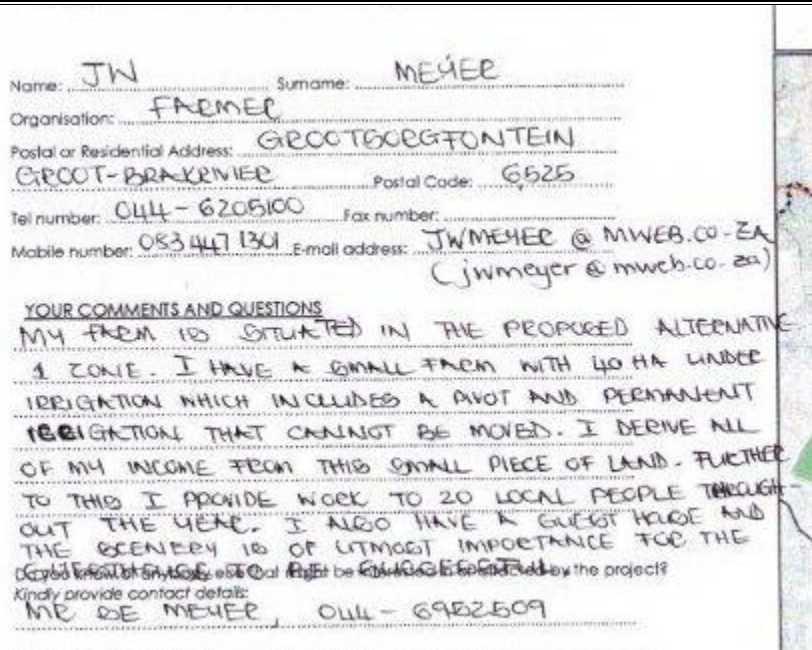 Name: JW Surname: MEYER
Organisation: FARMER
Postal or Residential Address: GROOTGORGFONTEIN
GROOT-BRAKRIVIER Postal Code: 6525
Tel number: 044-6205100 Fax number:
Mobile number: 083 447 1301 E-mail address: JWMEYER @ MWEB.CO.ZA
(jwmeyer @ mweb.co.za)
YOUR COMMENTS AND QUESTIONS
MY FARM IS SITUATED IN THE PROPOSED ALTERNATIVE
1 ZONE. I HAVE A SMALL FARM WITH 40 HA UNDER
IRRIGATION WHICH INCLUDES A PIVOT AND PERMANENT
IRRIGATION THAT CANNOT BE MOVED. I DERIVE ALL
OF MY INCOME FROM THIS SMALL PIECE OF LAND. FURTHER
TO THIS I PROVIDE WORK TO 20 LOCAL PEOPLE THROUGH
OUT THE YEAR. I ALSO HAVE A GUEST HOUSE AND
THE SCENERY IS OF UTMOST IMPORTANCE FOR THE
GUESTHOUSE TO BE SUCCESSFUL
Do you know of anybody else that might be interested in or affected by the project?
Kindly provide contact details:
MR DE MEYER, 044-6952509